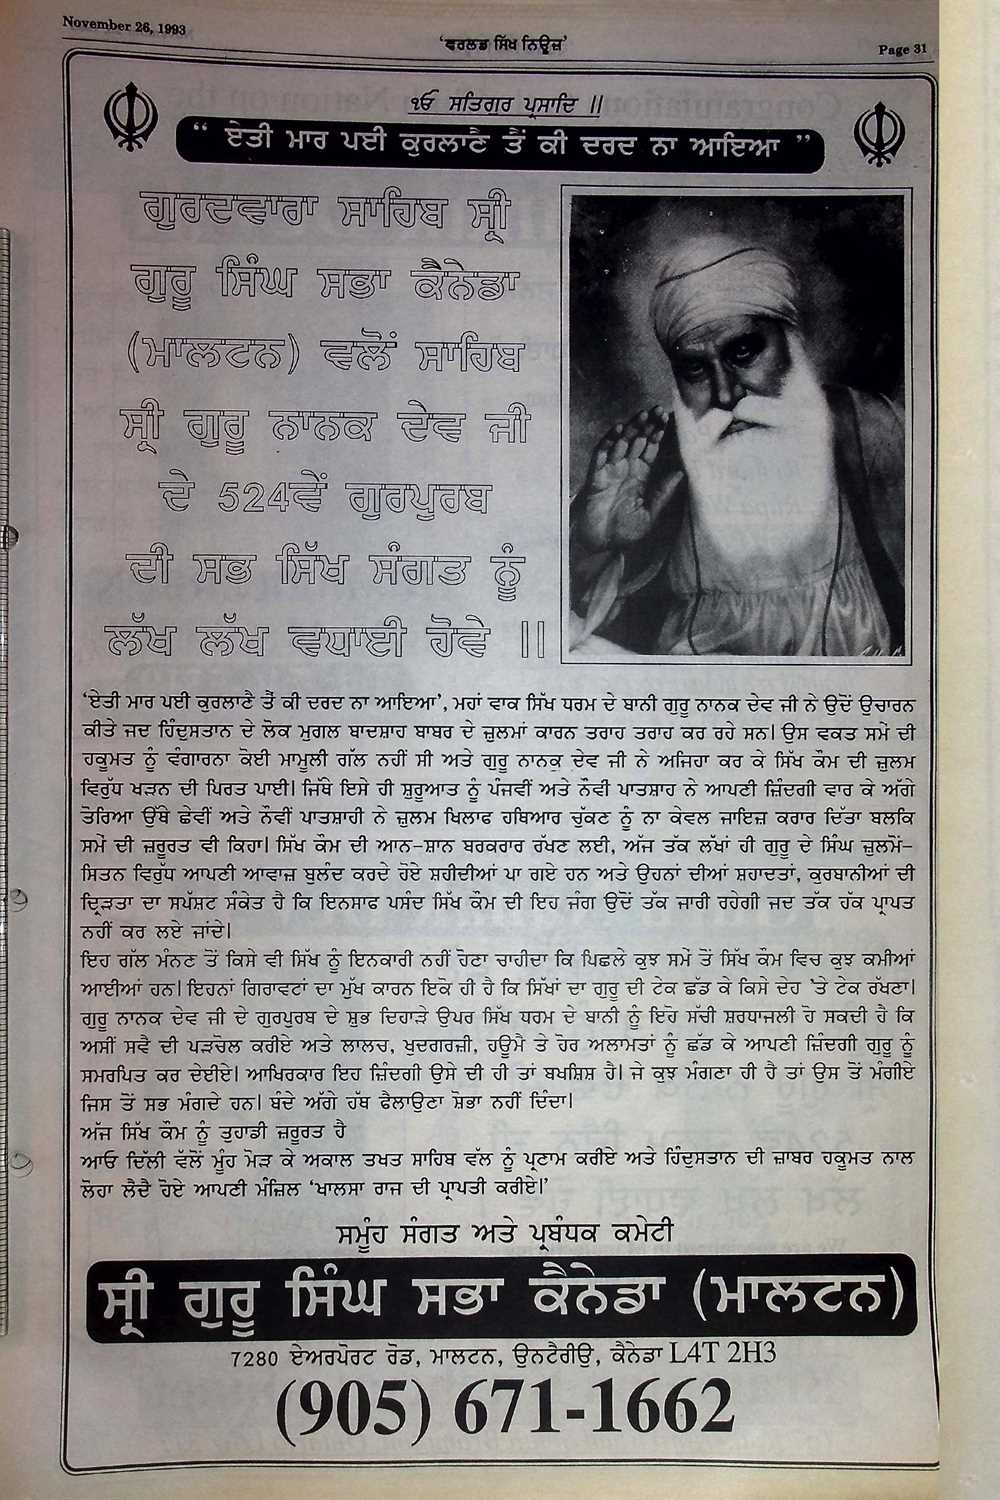 November 26, 1993
'ਵਰਲਡ ਸਿੱਖ ਨਿਊਜ਼'
Page 31
ੴ ਸਤਿਗੁਰ ਪ੍ਰਸਾਦਿ ॥
“ ਏਤੀ ਮਾਰ ਪਈ ਕੁਰਲਾਣੈ ਤੈਂ ਕੀ ਦਰਦ ਨਾ ਆਇਆ ”
ਗੁਰਦਵਾਰਾ ਸਾਹਿਬ ਸ੍ਰੀ
ਗੁਰੂ ਸਿੰਘ ਸਭਾ ਕੈਨੇਡਾ
(ਮਾਲਟਨ) ਵਲੋਂ ਸਾਹਿਬ
ਸ੍ਰੀ ਗੁਰੂ ਨਾਨਕ ਦੇਵ ਜੀ
ਦੇ 524ਵੇਂ ਗੁਰਪੁਰਬ
ਦੀ ਸਭ ਸਿੱਖ ਸੰਗਤ ਨੂੰ
ਲੱਖ ਲੱਖ ਵਧਾਈ ਹੋਵੇ ॥
'ਏਤੀ ਮਾਰ ਪਈ ਕੁਰਲਾਣੈ ਤੈਂ ਕੀ ਦਰਦ ਨਾ ਆਇਆ', ਮਹਾਂ ਵਾਕ ਸਿੱਖ ਧਰਮ ਦੇ ਬਾਨੀ ਗੁਰੂ ਨਾਨਕ ਦੇਵ ਜੀ ਨੇ ਉਦੋਂ ਉਚਾਰਨ
ਕੀਤੇ ਜਦ ਹਿੰਦੁਸਤਾਨ ਦੇ ਲੋਕ ਮੁਗਲ ਬਾਦਸ਼ਾਹ ਬਾਬਰ ਦੇ ਜ਼ੁਲਮਾਂ ਕਾਰਨ ਤਰਾਹ ਤਰਾਹ ਕਰ ਰਹੇ ਸਨ। ਉਸ ਵਕਤ ਸਮੇਂ ਦੀ
ਹਕੂਮਤ ਨੂੰ ਵੰਗਾਰਨਾ ਕੋਈ ਮਾਮੂਲੀ ਗੱਲ ਨਹੀਂ ਸੀ ਅਤੇ ਗੁਰੂ ਨਾਨਕ ਦੇਵ ਜੀ ਨੇ ਅਜਿਹਾ ਕਰ ਕੇ ਸਿੱਖ ਕੌਮ ਦੀ ਜ਼ੁਲਮ
ਵਿਰੁੱਧ ਖੜਨ ਦੀ ਪਿਰਤ ਪਾਈ। ਜਿੱਥੇ ਇਸੇ ਹੀ ਸ਼ੁਰੂਆਤ ਨੂੰ ਪੰਜਵੀਂ ਅਤੇ ਨੌਵੀ ਪਾਤਸ਼ਾਹ ਨੇ ਆਪਣੀ ਜ਼ਿੰਦਗੀ ਵਾਰ ਕੇ ਅੱਗੇ
ਤੋਰਿਆ ਉੱਥੇ ਛੇਵੀਂ ਅਤੇ ਨੌਵੀ ਪਾਤਸ਼ਾਹੀ ਨੇ ਜ਼ੁਲਮ ਖਿਲਾਫ ਹਥਿਆਰ ਚੁੱਕਣ ਨੂੰ ਨਾ ਕੇਵਲ ਜਾਇਜ਼ ਕਰਾਰ ਦਿੱਤਾ ਬਲਕਿ
ਸਮੇਂ ਦੀ ਜ਼ਰੂਰਤ ਵੀ ਕਿਹਾ। ਸਿੱਖ ਕੌਮ ਦੀ ਆਨ-ਸ਼ਾਨ ਬਰਕਰਾਰ ਰੱਖਣ ਲਈ, ਅੱਜ ਤੱਕ ਲੱਖਾਂ ਹੀ ਗੁਰੂ ਦੇ ਸਿੰਘ ਜ਼ੁਲਮੋਂ-
ਸਿਤਨ ਵਿਰੁੱਧ ਆਪਣੀ ਆਵਾਜ਼ ਬੁਲੰਦ ਕਰਦੇ ਹੋਏ ਸ਼ਹੀਦੀਆਂ ਪਾ ਗਏ ਹਨ ਅਤੇ ਉਹਨਾਂ ਦੀਆਂ ਸ਼ਹਾਦਤਾਂ, ਕੁਰਬਾਨੀਆਂ ਦੀ
ਦ੍ਰਿੜਤਾ ਦਾ ਸਪੱਸ਼ਟ ਸੰਕੇਤ ਹੈ ਕਿ ਇਨਸਾਫ ਪਸੰਦ ਸਿੱਖ ਕੌਮ ਦੀ ਇਹ ਜੰਗ ਉਦੋਂ ਤੱਕ ਜਾਰੀ ਰਹੇਗੀ ਜਦ ਤੱਕ ਹੱਕ ਪ੍ਰਾਪਤ
ਨਹੀਂ ਕਰ ਲਏ ਜਾਂਦੇ।
ਇਹ ਗੱਲ ਮੰਨਣ ਤੋਂ ਕਿਸੇ ਵੀ ਸਿੱਖ ਨੂੰ ਇਨਕਾਰੀ ਨਹੀਂ ਹੋਣਾ ਚਾਹੀਦਾ ਕਿ ਪਿਛਲੇ ਕੁਝ ਸਮੇਂ ਤੋਂ ਸਿੱਖ ਕੌਮ ਵਿਚ ਕੁਝ ਕਮੀਆਂ
ਆਈਆਂ ਹਨ। ਇਹਨਾਂ ਗਿਰਾਵਟਾਂ ਦਾ ਮੁੱਖ ਕਾਰਨ ਇਕੋ ਹੀ ਹੈ ਕਿ ਸਿੱਖਾਂ ਦਾ ਗੁਰੂ ਦੀ ਟੇਕ ਛੱਡ ਕੇ ਕਿਸੇ ਦੇਹ 'ਤੇ ਟੇਕ ਰੱਖਣਾ।
ਗੁਰੂ ਨਾਨਕ ਦੇਵ ਜੀ ਦੇ ਗੁਰਪੁਰਬ ਦੇ ਸ਼ੁਭ ਦਿਹਾੜੇ ਉਪਰ ਸਿੱਖ ਧਰਮ ਦੇ ਬਾਨੀ ਨੂੰ ਇਹੋ ਸੱਚੀ ਸ਼ਰਧਾਜਲੀ ਹੋ ਸਕਦੀ ਹੈ ਕਿ
ਅਸੀਂ ਸਵੈ ਦੀ ਪੜਚੋਲ ਕਰੀਏ ਅਤੇ ਲਾਲਚ, ਖੁਦਗਰਜ਼ੀ, ਹਊਮੈ ਤੇ ਹੋਰ ਅਲਾਮਤਾਂ ਨੂੰ ਛੱਡ ਕੇ ਆਪਣੀ ਜ਼ਿੰਦਗੀ ਗੁਰੂ ਨੂੰ
ਸਮਰਪਿਤ ਕਰ ਦੇਈਏ। ਆਖਿਰਕਾਰ ਇਹ ਜ਼ਿੰਦਗੀ ਉਸੇ ਦੀ ਹੀ ਤਾਂ ਬਖਸ਼ਿਸ਼ ਹੈ। ਜੇ ਕੁਝ ਮੰਗਣਾ ਹੀ ਹੈ ਤਾਂ ਉਸ ਤੋਂ ਮੰਗੀਏ
ਜਿਸ ਤੋਂ ਸਭ ਮੰਗਦੇ ਹਨ। ਬੰਦੇ ਅੱਗੇ ਹੱਥ ਫੈਲਾਉਣਾ ਸ਼ੋਭਾ ਨਹੀਂ ਦਿੰਦਾ।
ਅੱਜ ਸਿੱਖ ਕੌਮ ਨੂੰ ਤੁਹਾਡੀ ਜ਼ਰੂਰਤ ਹੈ
ਆਓ ਦਿੱਲੀ ਵੱਲੋਂ ਮੂੰਹ ਮੋੜ ਕੇ ਅਕਾਲ ਤਖਤ ਸਾਹਿਬ ਵੱਲ ਨੂੰ ਪ੍ਰਣਾਮ ਕਰੀਏ ਅਤੇ ਹਿੰਦੁਸਤਾਨ ਦੀ ਜ਼ਾਬਰ ਹਕੂਮਤ ਨਾਲ
ਲੋਹਾ ਲੈਦੈ ਹੋਏ ਆਪਣੀ ਮੰਜ਼ਿਲ 'ਖਾਲਸਾ ਰਾਜ ਦੀ ਪ੍ਰਾਪਤੀ ਕਰੀਏ।'
ਸਮੂੰਹ ਸੰਗਤ ਅਤੇ ਪ੍ਰਬੰਧਕ ਕਮੇਟੀ
ਸ੍ਰੀ ਗੁਰੂ ਸਿੰਘ ਸਭਾ ਕੈਨੇਡਾ (ਮਾਲਟਨ)
7280 ਏਅਰਪੋਰਟ ਰੋਡ, ਮਾਲਟਨ, ਉਨਟੈਰੀਉ, ਕੈਨੇਡਾ L4T 2H3
(905) 671-1662